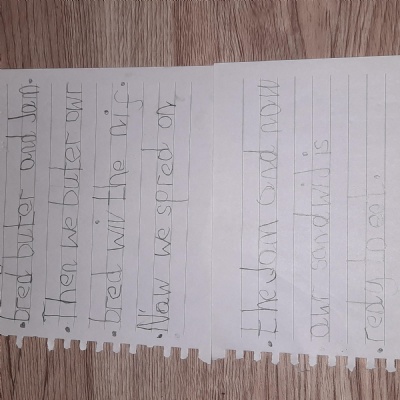 bred buter and Jam.
Then we buter owr
bred wiv the nif.
Now we spred on
the Jam and now
owr sandwid is
redy to eat.